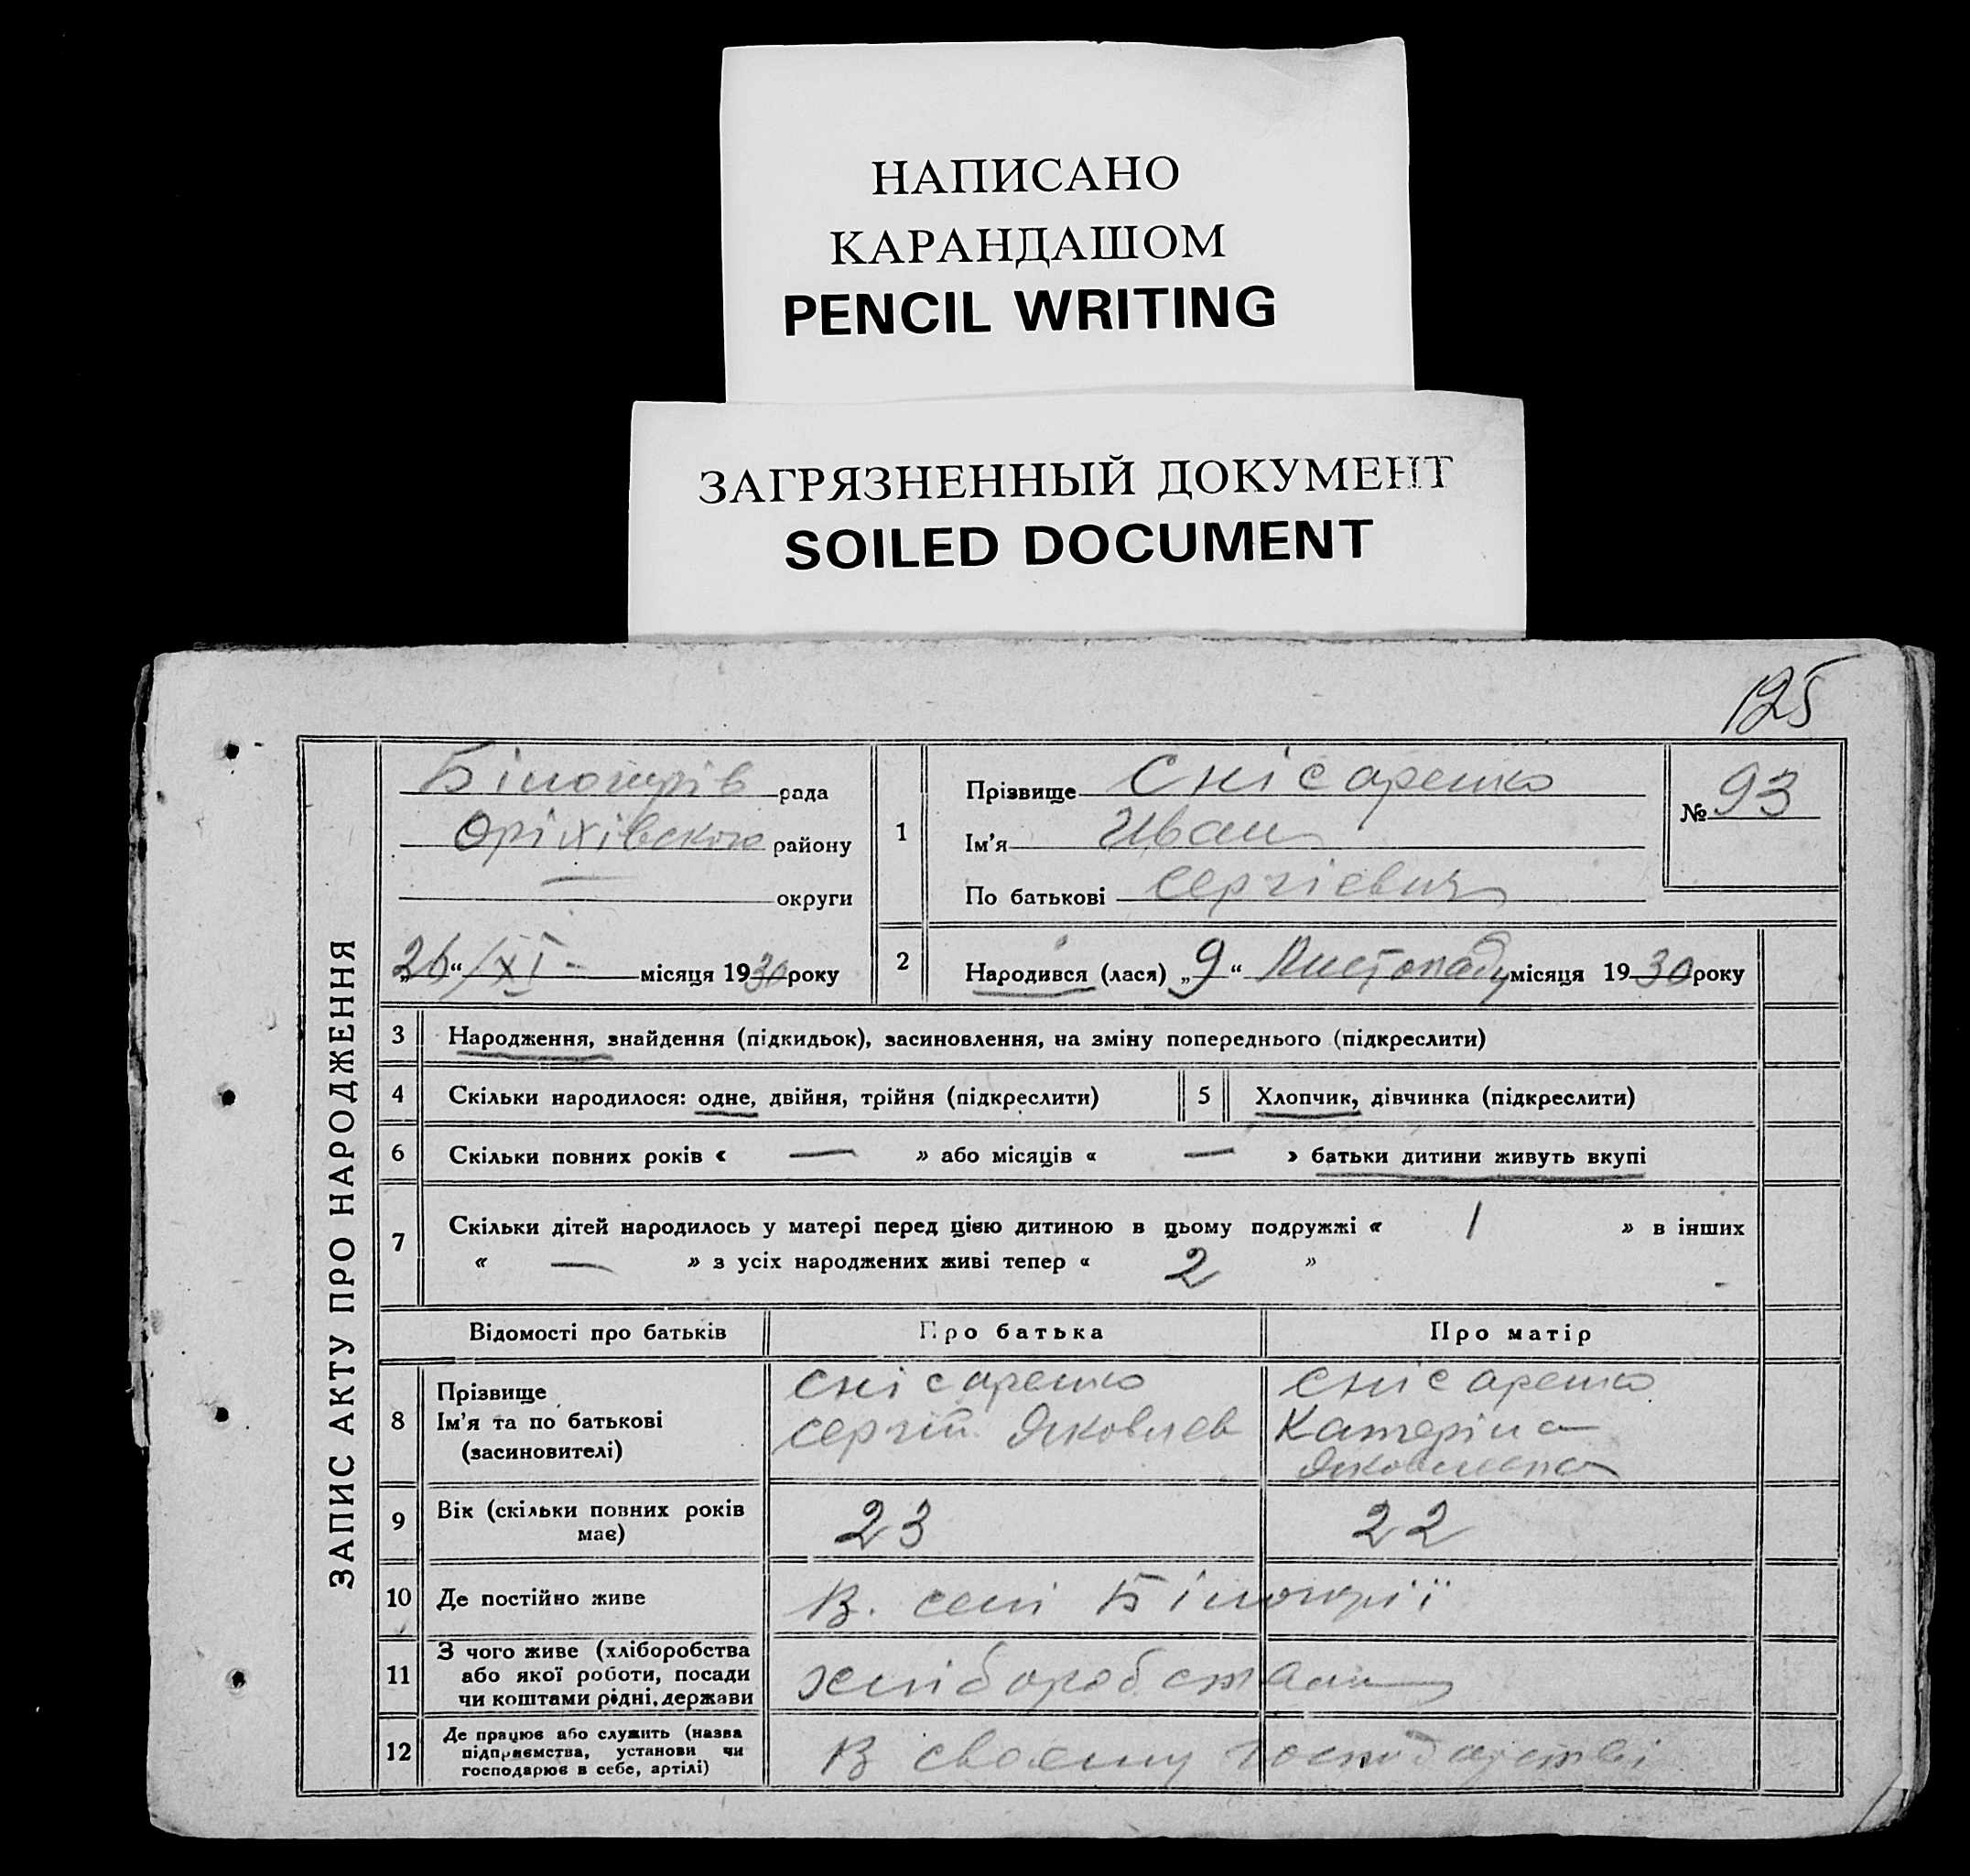 НАПИСАНО
КАРАНДАШОМ
PENCIL WRITING
ЗАГРЯЗНЕННЫЙ ДОКУМЕНТ
SOILED DOCUMENT
125
ЗАПИС АКТУ ПРО НАРОДЖЕННЯ
Білогорів рада
Оріхівского району
— округи
26 "/XI - місяця 1930 року
1
Прізвище Снісаренко
Ім'я Иван
По батькові Сергієвич
№ 93
2 Народився (лася) „9“ Листопаду місяця 1930 року
3 Народження, знайдення (підкидьок), засиновлення, на зміну попереднього (підкреслити)
4 Скільки народилося: одне, двійня, трійня (підкреслити) 5 Хлопчик, дівчинка (підкреслити)
6 Скільки повних років « — » або місяців « — » батьки дитини живуть вкупі
7 Скільки дітей народилось у матері перед цією дитиною в цьому подружжі « 1 » в інших
« — » з усіх народжених живі тепер « 2 »
Відомості про батьків Про батька Про матір
8 Прізвище
Ім'я та по батькові
(засиновителі)
Снісаренко
Сергій Яковлев
Снісаренко
Катеріна
Яковлевна
9 Вік (скільки повних років
має)
23 22
10 Де постійно живе В. селі Білогорії
11 З чого живе (хліборобства
або якої роботи, посади
чи коштами рідні, держави
хліборобства
12 Де працює або служить (назва
підприємства, установи чи
господарює в себе, артілі)
В своєму господарстві